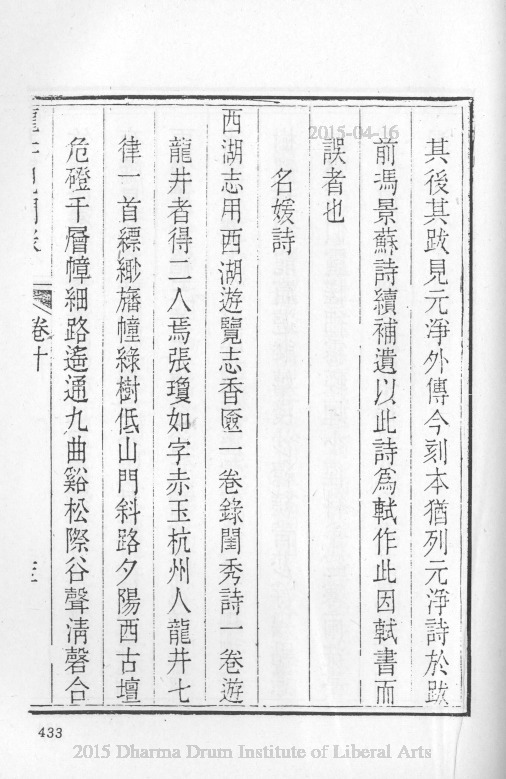 其後其跋見元淨外傳今刻本猶列元淨詩於跋
前馮景蘇詩續補遺以此詩爲軾作此因軾書而
誤者也
名媛詩
西湖志用西湖遊覽志香奩一卷錄閨秀詩一卷遊
龍井者得二人焉張瓊如字赤玉杭州人龍井七
律一首縹緲旛幢綠樹低山門斜路夕陽西古壇
危磴千層幛細路遙通九曲谿松際谷聲清磬合
卷十
433
2015-04-16
2015 Dharma Drum Institute of Liberal Arts